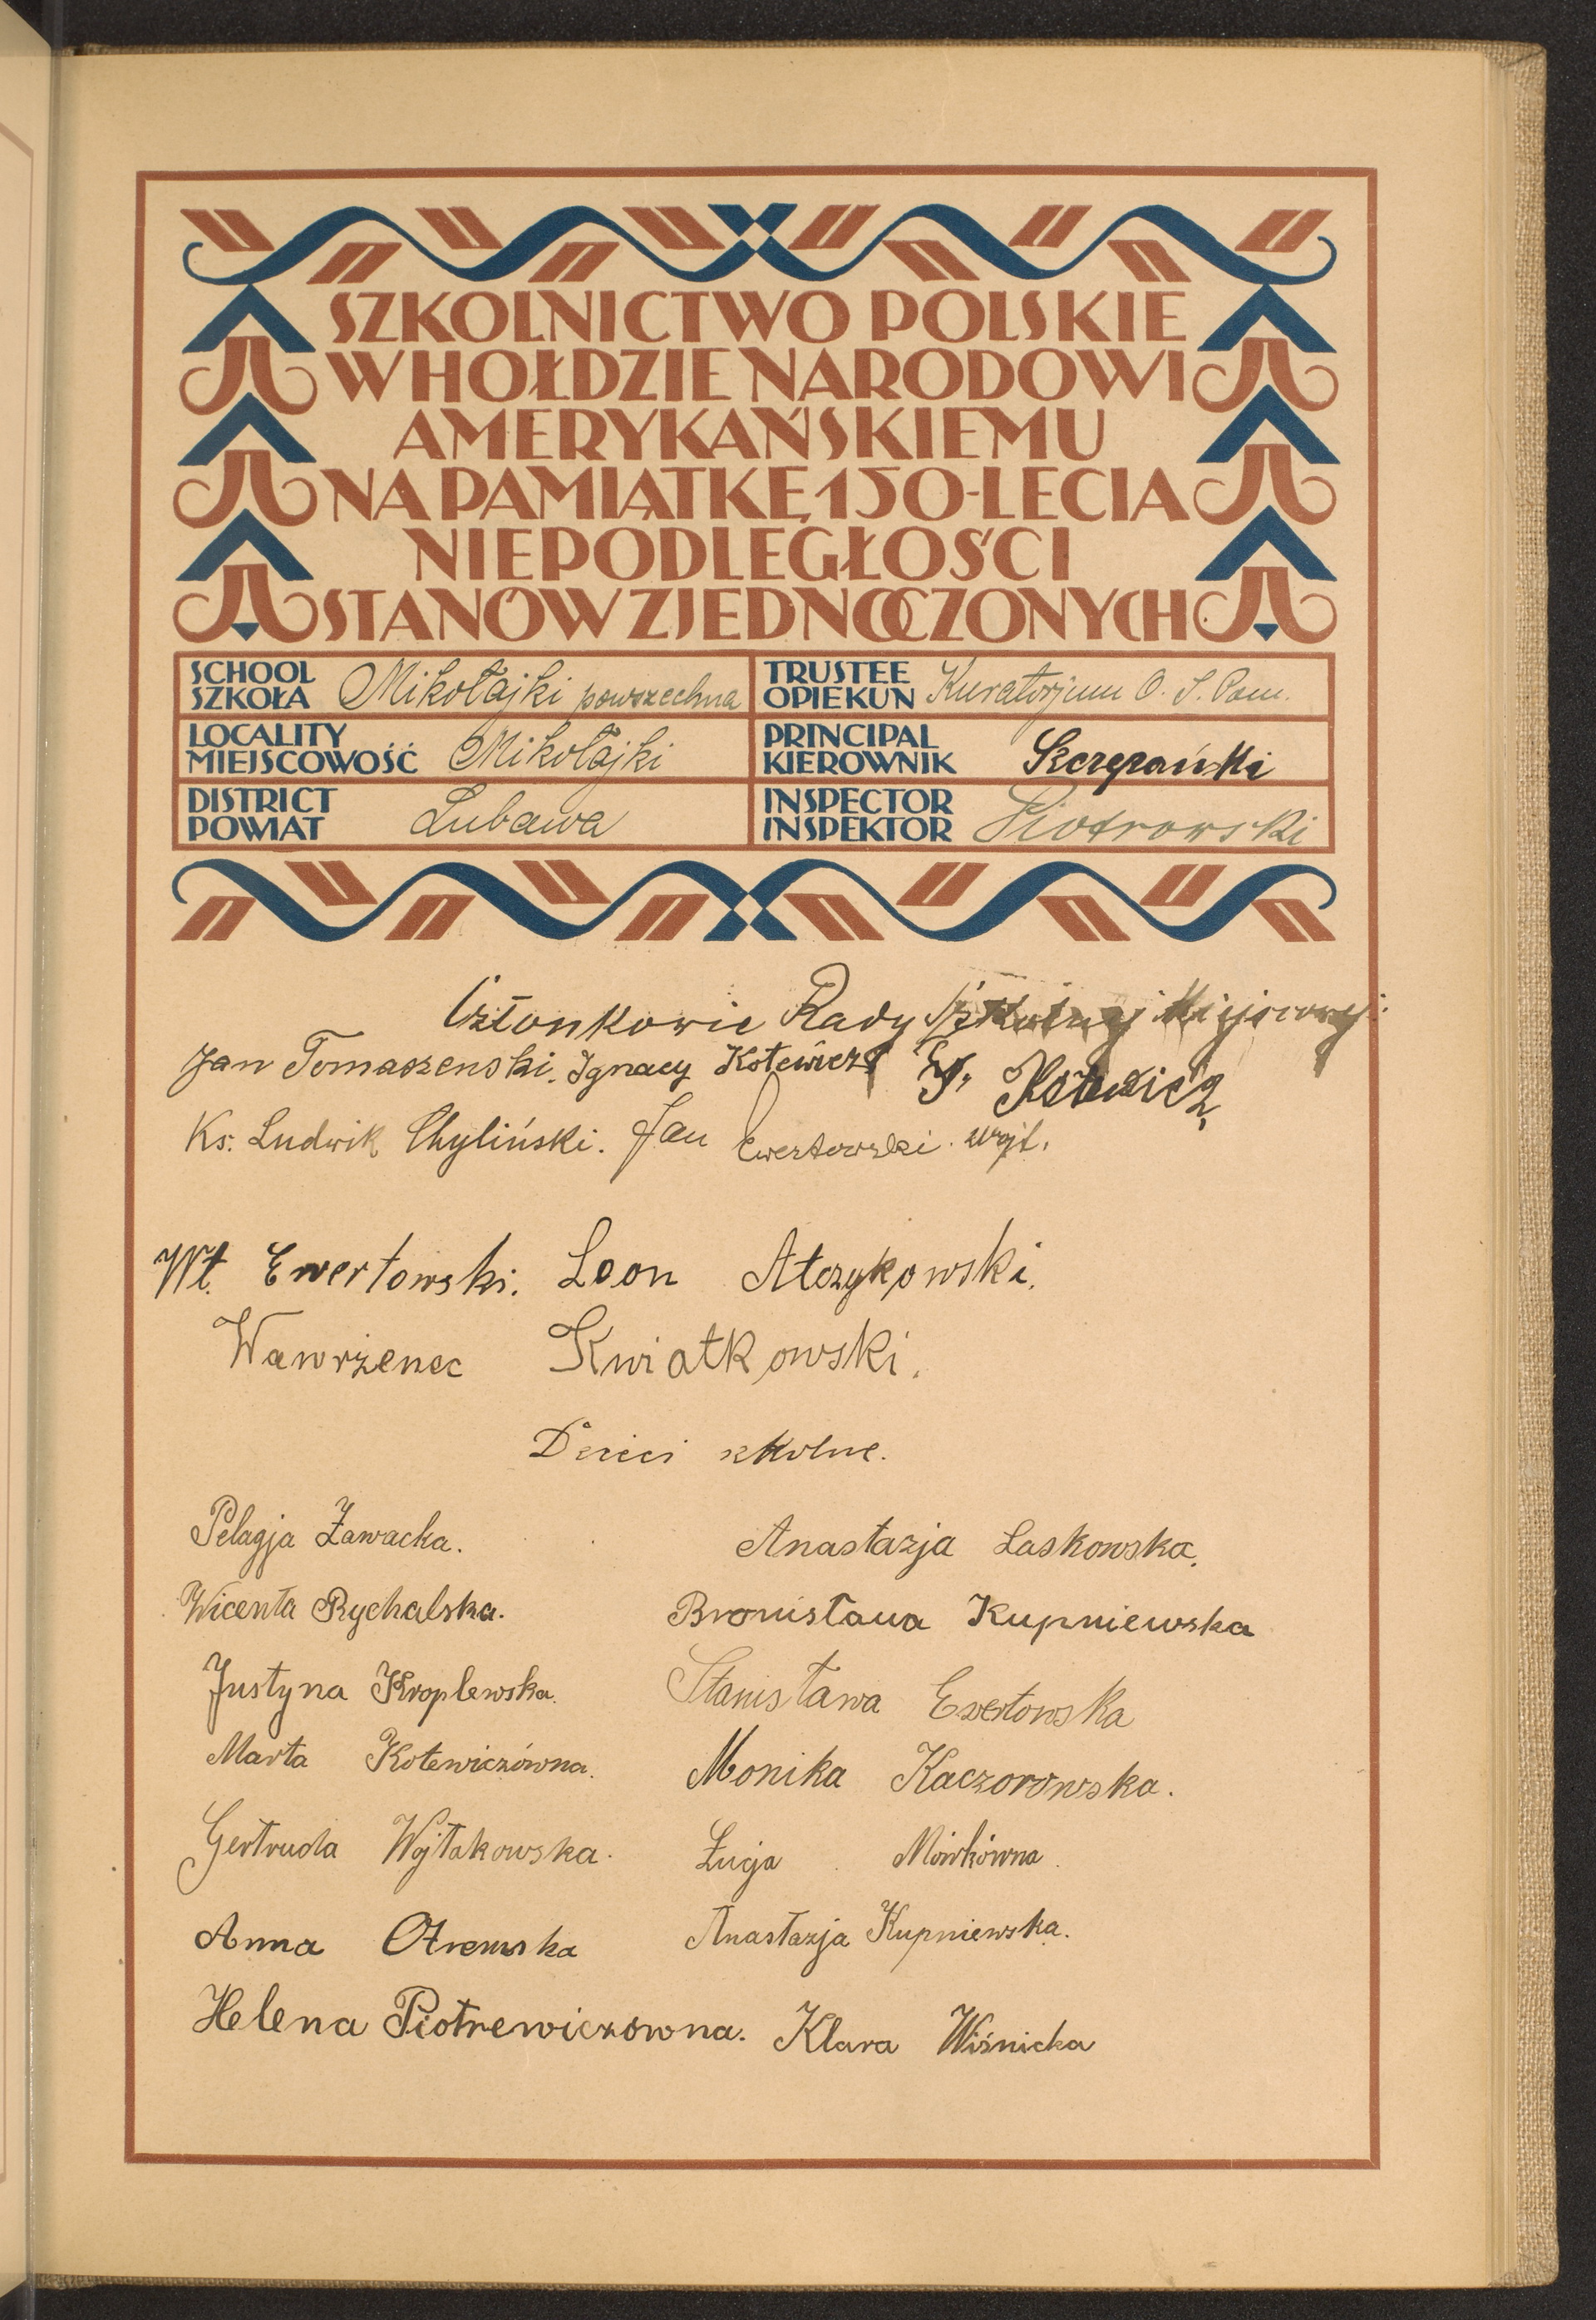 SZKOLNICTWO POLSKIE
W HOŁDZIE NARODOWI
AMERYKAŃSKIEMU
NA PAMIĄTKĘ 150-LECIA
NIEPODLEGŁOŚCI
STANÓW ZJEDNOCZONYCH
SCHOOL
SZKOŁA Mikołajki powszechna
TRUSTEE
OPIEKUN Kuratorjum O. S. Pom.
LOCALITY
MIEJSCOWOŚĆ Mikołajki
PRINCIPAL
KIEROWNIK Szczepański
DISTRICT
POWIAT Lubawa
INSPECTOR
INSPEKTOR Piotrowski
Członkowie Rady Szkolnej Miejscowej:
Jan Tomaszewski. Ignacy Kotewicz J. Kotewicz
Ks. Ludwik Chyliński. Jan Ewertowski. wójt.
Wł. Ewertowski. Leon Atczykowski.
Wawrzenec Kwiatkowski.
Dzieci szkolne.
Pelagja Zawacka. Anastazja Laskowska.
Wicenta Rychalska. Bronisława Kupniewska
Justyna Kroplewska. Stanisława Ewertowska
Marta Kotewiczówna. Monika Kaczorowska.
Gertruda Wojtakowska. Łucja Mówkówna.
Anna Otremska Anastazja Kupniewska.
Helena Piotrewiczówna. Klara Wiśnicka